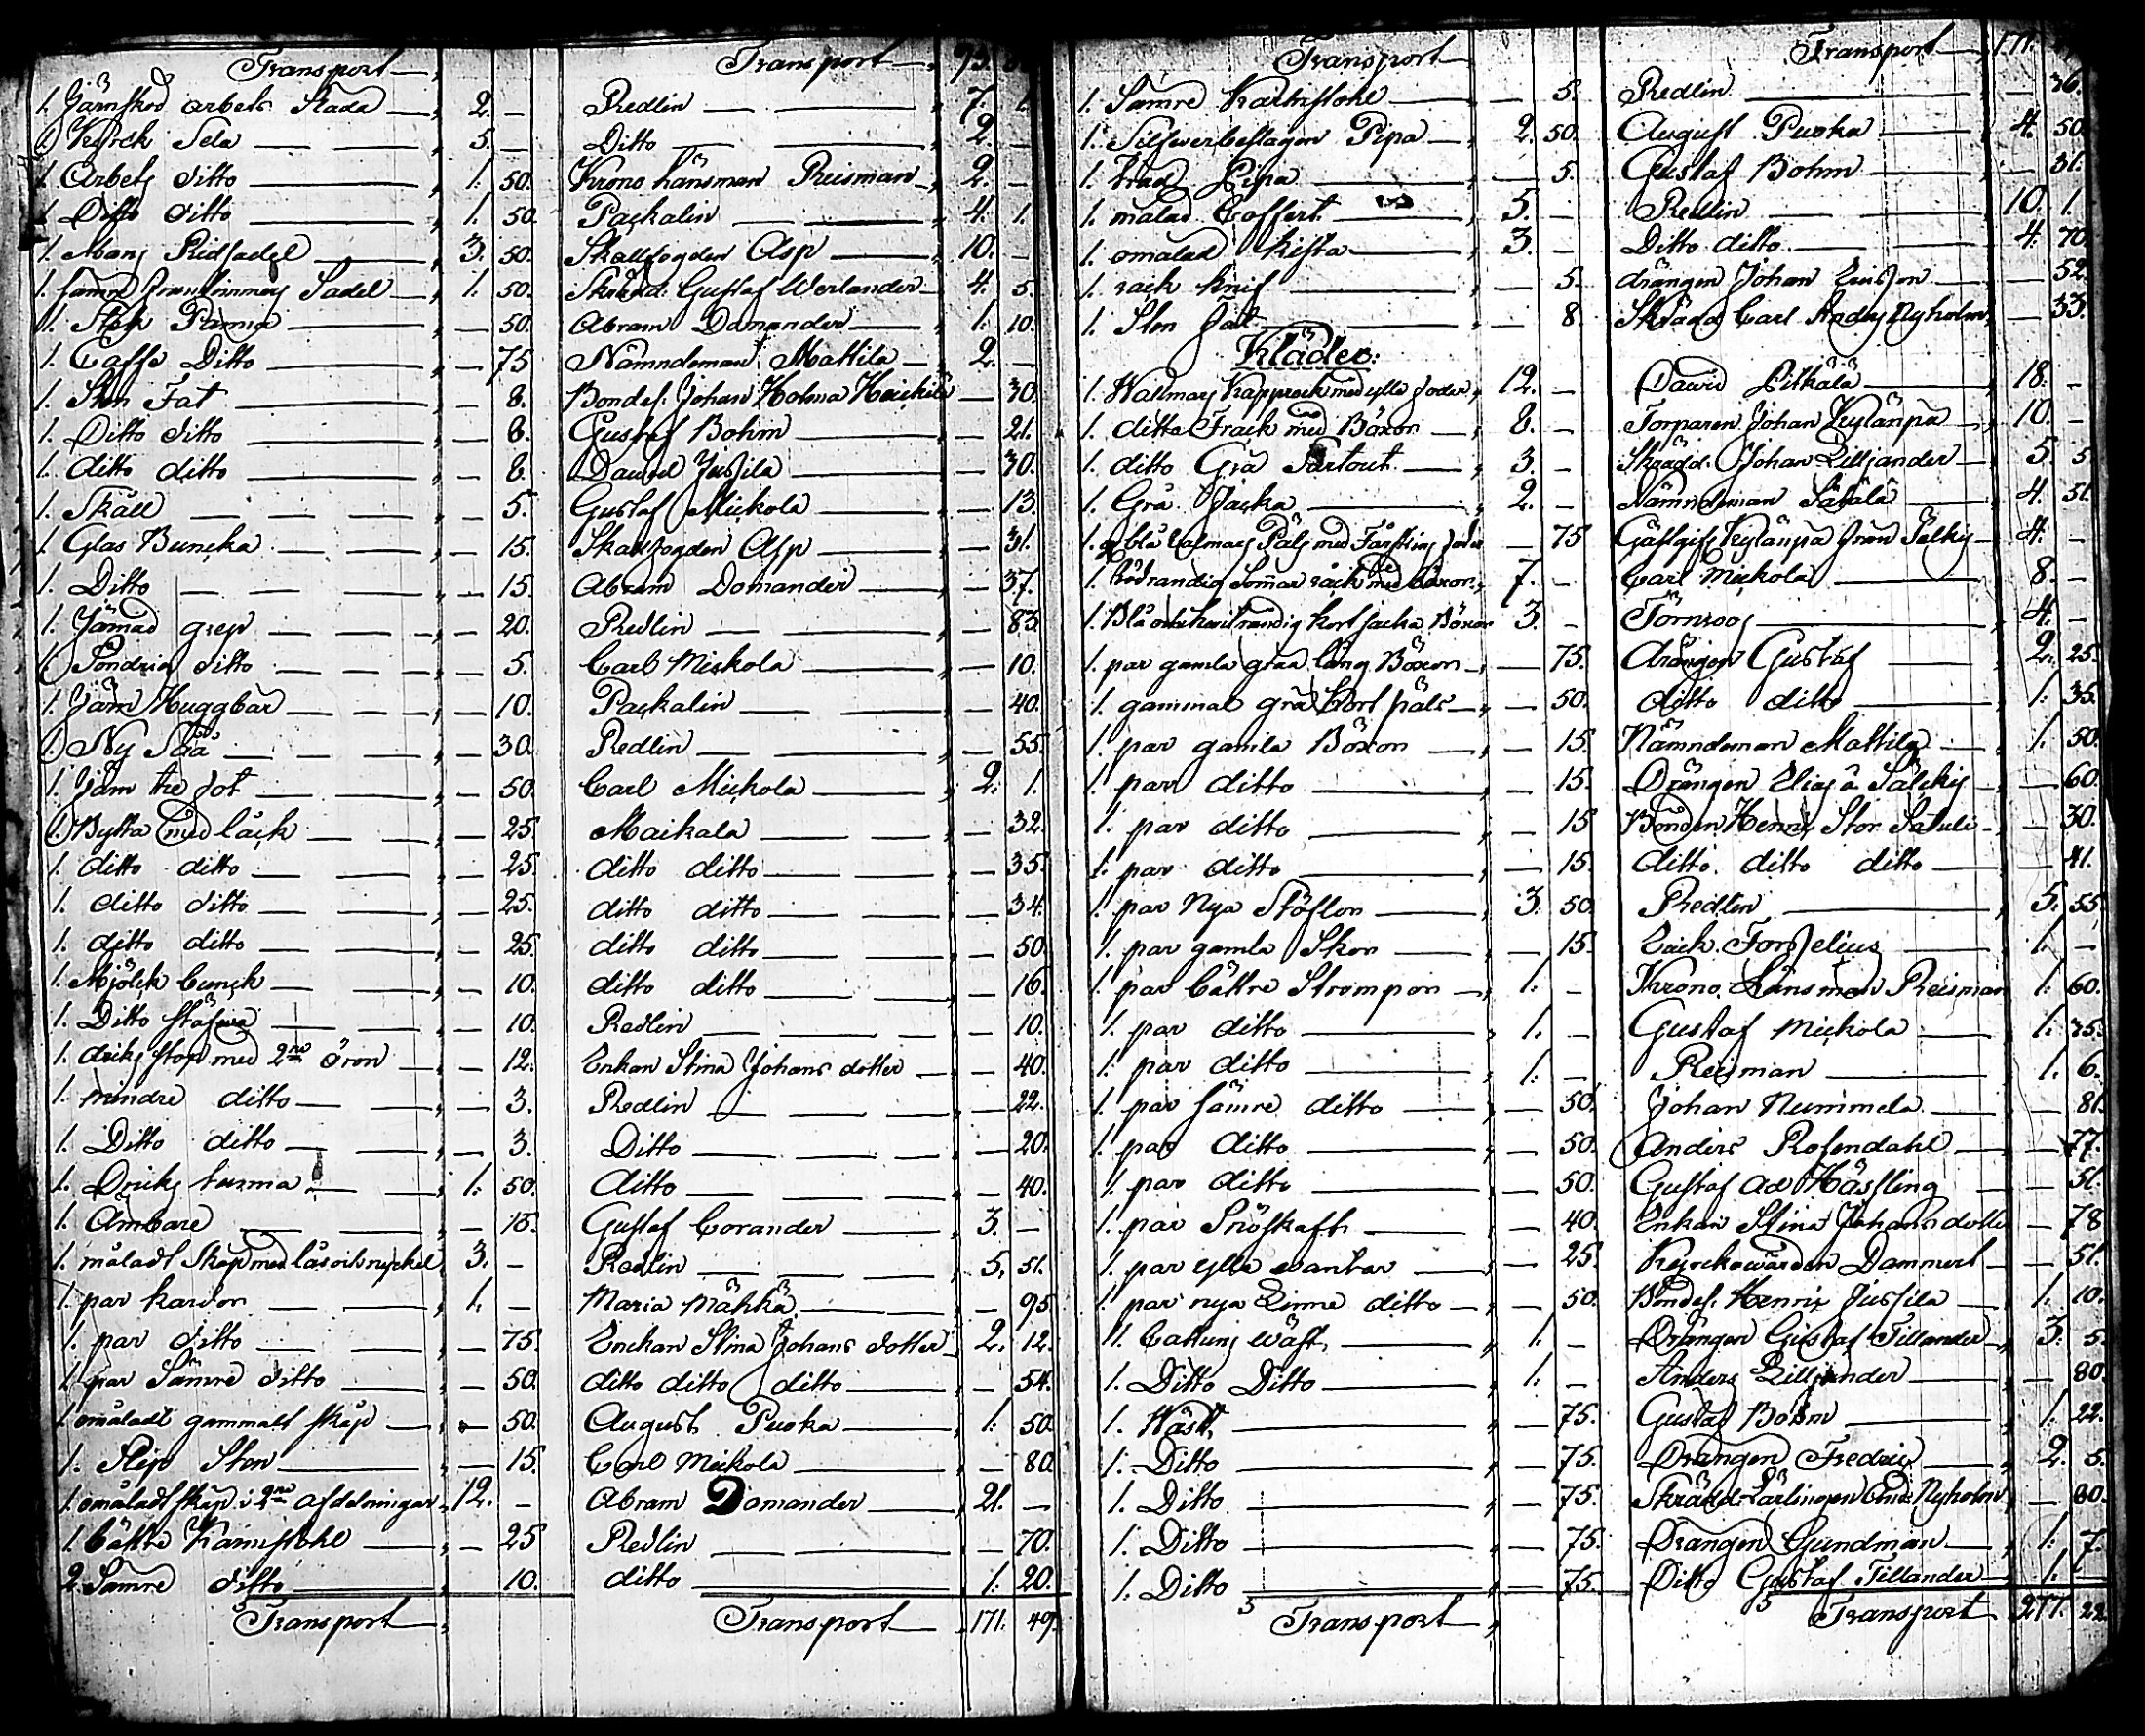 Transport Transport 95.
1. Järnskod arbets Släda 2. — Redlin 7. 1.
1. Kyrck Sela 5. — Ditto 2. —
1. Arbets ditto 1. 50. Krono Länsman Reisman 2. —
1. Ditto ditto 1. 50. Packalin 4. 1.
1. Mans Ridsadel 3. 50. Skallfogden Asp 10. —
1. sämre Sadel 1. 50. Skrädd. Gustaf Werlander 4. 5.
1. Stek Panna — 50. Abram Domander 1. 10.
1. Caffe Ditto — 75 Nämndeman Mattila 2. —
1. Sten Fat — 8. Bondes. Johan Holma Heickilä — 30.
1. Ditto ditto — 8. Gustaf Bohm — 21.
1. ditto ditto — 8. David Jussila — 30.
1. Skåll — 5. Gustaf Mickola — 13.
1. Glas Buncka — 15. Skallfogden Asp — 31.
1. Ditto — 15. Abram Domander — 37.
1. Järnad grep — 20. Redlin — 83.
1. Söndrig ditto — 5. Carl Mickola — 10.
1. Järn Huggbar — 10. Packalin — 40.
1. Ny Såå — 30. Redlin — 55.
1. Järn tre fot — 50. Carl Mickola 2. 1.
1. Bytta med låck — 25. Maikala — 32.
1. ditto ditto — 25. ditto ditto — 35.
1. ditto ditto — 25. ditto ditto — 34.
1. ditto ditto — 25. ditto ditto — 50.
1. Mjölck bunck — 10. ditto ditto — 16.
1. Ditto stäfwa — 10. Redlin — 10.
1. dricks stop med 2ne öron — 12. Enkan Stina Johans dotter — 40.
1. mindre ditto — 3. Redlin — 22.
1. Ditto ditto — 3. Ditto — 20.
1. Dricks tunna 1. 50. ditto — 40.
1. Ämbare — 18. Gustaf Corander 3. —
1. måladt Skåp med lås och nyckel 3. — Redlin 5. 51.
1. par kardor 1. — Maria Mähkä — 95
1. par ditto — 75. Enckan Stina Johans dotter 2. 12.
1. par Sämre ditto — 50. ditto ditto ditto — 54.
1. omåladt gammalt skåp — 50. August Puoka 1. 50.
1. Slip Sten — 15. Carl Mickola — 80.
1. omåladt skåp i 2ne afdelningar 12. — Abram Domander 21. —
1. bättre Karmstohl — 25 Redlin — 70.
2. Sämre ditto 10. ditto 1. 20.
Transport Transport 171. 49.
Transport Transport 171.
1. Sämre Karmstohl — 5. Redlin — 36.
1. Silfwerbeslagen Pipa 2. 50. August Puoka 4. 50.
1. träd Pipa — 5. Gustaf Bohm — 31.
1. målad Coffert 5. — Redlin 10. 1.
1. omålad kista 3. — Ditto ditto 4. 70.
1. rack knif — 5. drängen Johan Ericsson — 52.
1. Sten Fat — 8. Skrädd. Carl Anders Nyholm — 33.
Kläder:
1. Wallmars Kapprock med ylle foder 12. — David Pitkälä 18. —
1. ditto Frack med Böxor 8. — Torparen Johan Kylänpä 10. —
1. ditto Grå Surtout 3. — Skrädd. Johan Lilljander 5. 5.
1. Grå Jacka 2. — Nämndeman Sätälä 4. 51.
1. blå valmars Päls med Fårskins foder — 75 Gästgifv. Kylänpä från Sälkis 4. —
1. Rödrandig Sommar råck med böxor 7. — Carl Mickola 8. —
1. Blå och hvit randig kort jacka Böxor 3. — Törnroos 4. —
1. par gamla gråa lång Böxor — 75. drängen Gustaf 2. 25.
1. gammal grå kort päls — 50. ditto ditto 1. 35.
1. par gamla Böxor — 15. Nämndeman Mattila 1. 50.
1. par ditto — 15. Drängen Elias å Sälckis — 60.
1. par ditto — 15 Bonden Henric Stor Satuli — 30.
1. par ditto — 15. ditto ditto ditto — 41.
1. par Nya Stöflor 3. 50. Redlin 5. 55.
1. par gamla Skor — 15. Zach. Forselius 1. —
1. par bättre Strompor 1. — Krono Länsman Reisman 1. 60.
1. par ditto 1. — Gustaf Mickola 1. 75.
1. par ditto 1. — Reisman 1. 6.
1. par sämre ditto — 50. Johan Nummela — 81.
1. par ditto — 50. Anders Rosendahl — 77.
1. par ditto — 50. Gustaf Ad. Hässling — 51.
1. par Snöskaft — 40. Enkan Stina Johans dotter — 78
1. par ylle vantar — 25. Kyrckowärden Dammert — 51.
1. par nya Linne ditto — 50. Bondes. Henric Jussila 1. 10.
1. Cattuns wäst 1. — Drängen Gustaf Tillander 3. 5.
1. Ditto Ditto 1. — Anders Lilljander — 80.
1. Wäst — 75. Gustaf Bohm 1. 22.
1. Ditto — 75. Drängen Fredric 2. 5.
1. Ditto — 75. Skrädd. Lärlingen Nyholm — 80.
1. Ditto — 75. Drängen Grundman 1. 7.
1. Ditto — 75 Ditto Gustaf Tillander 1. —
Transport Transport 277. 22.